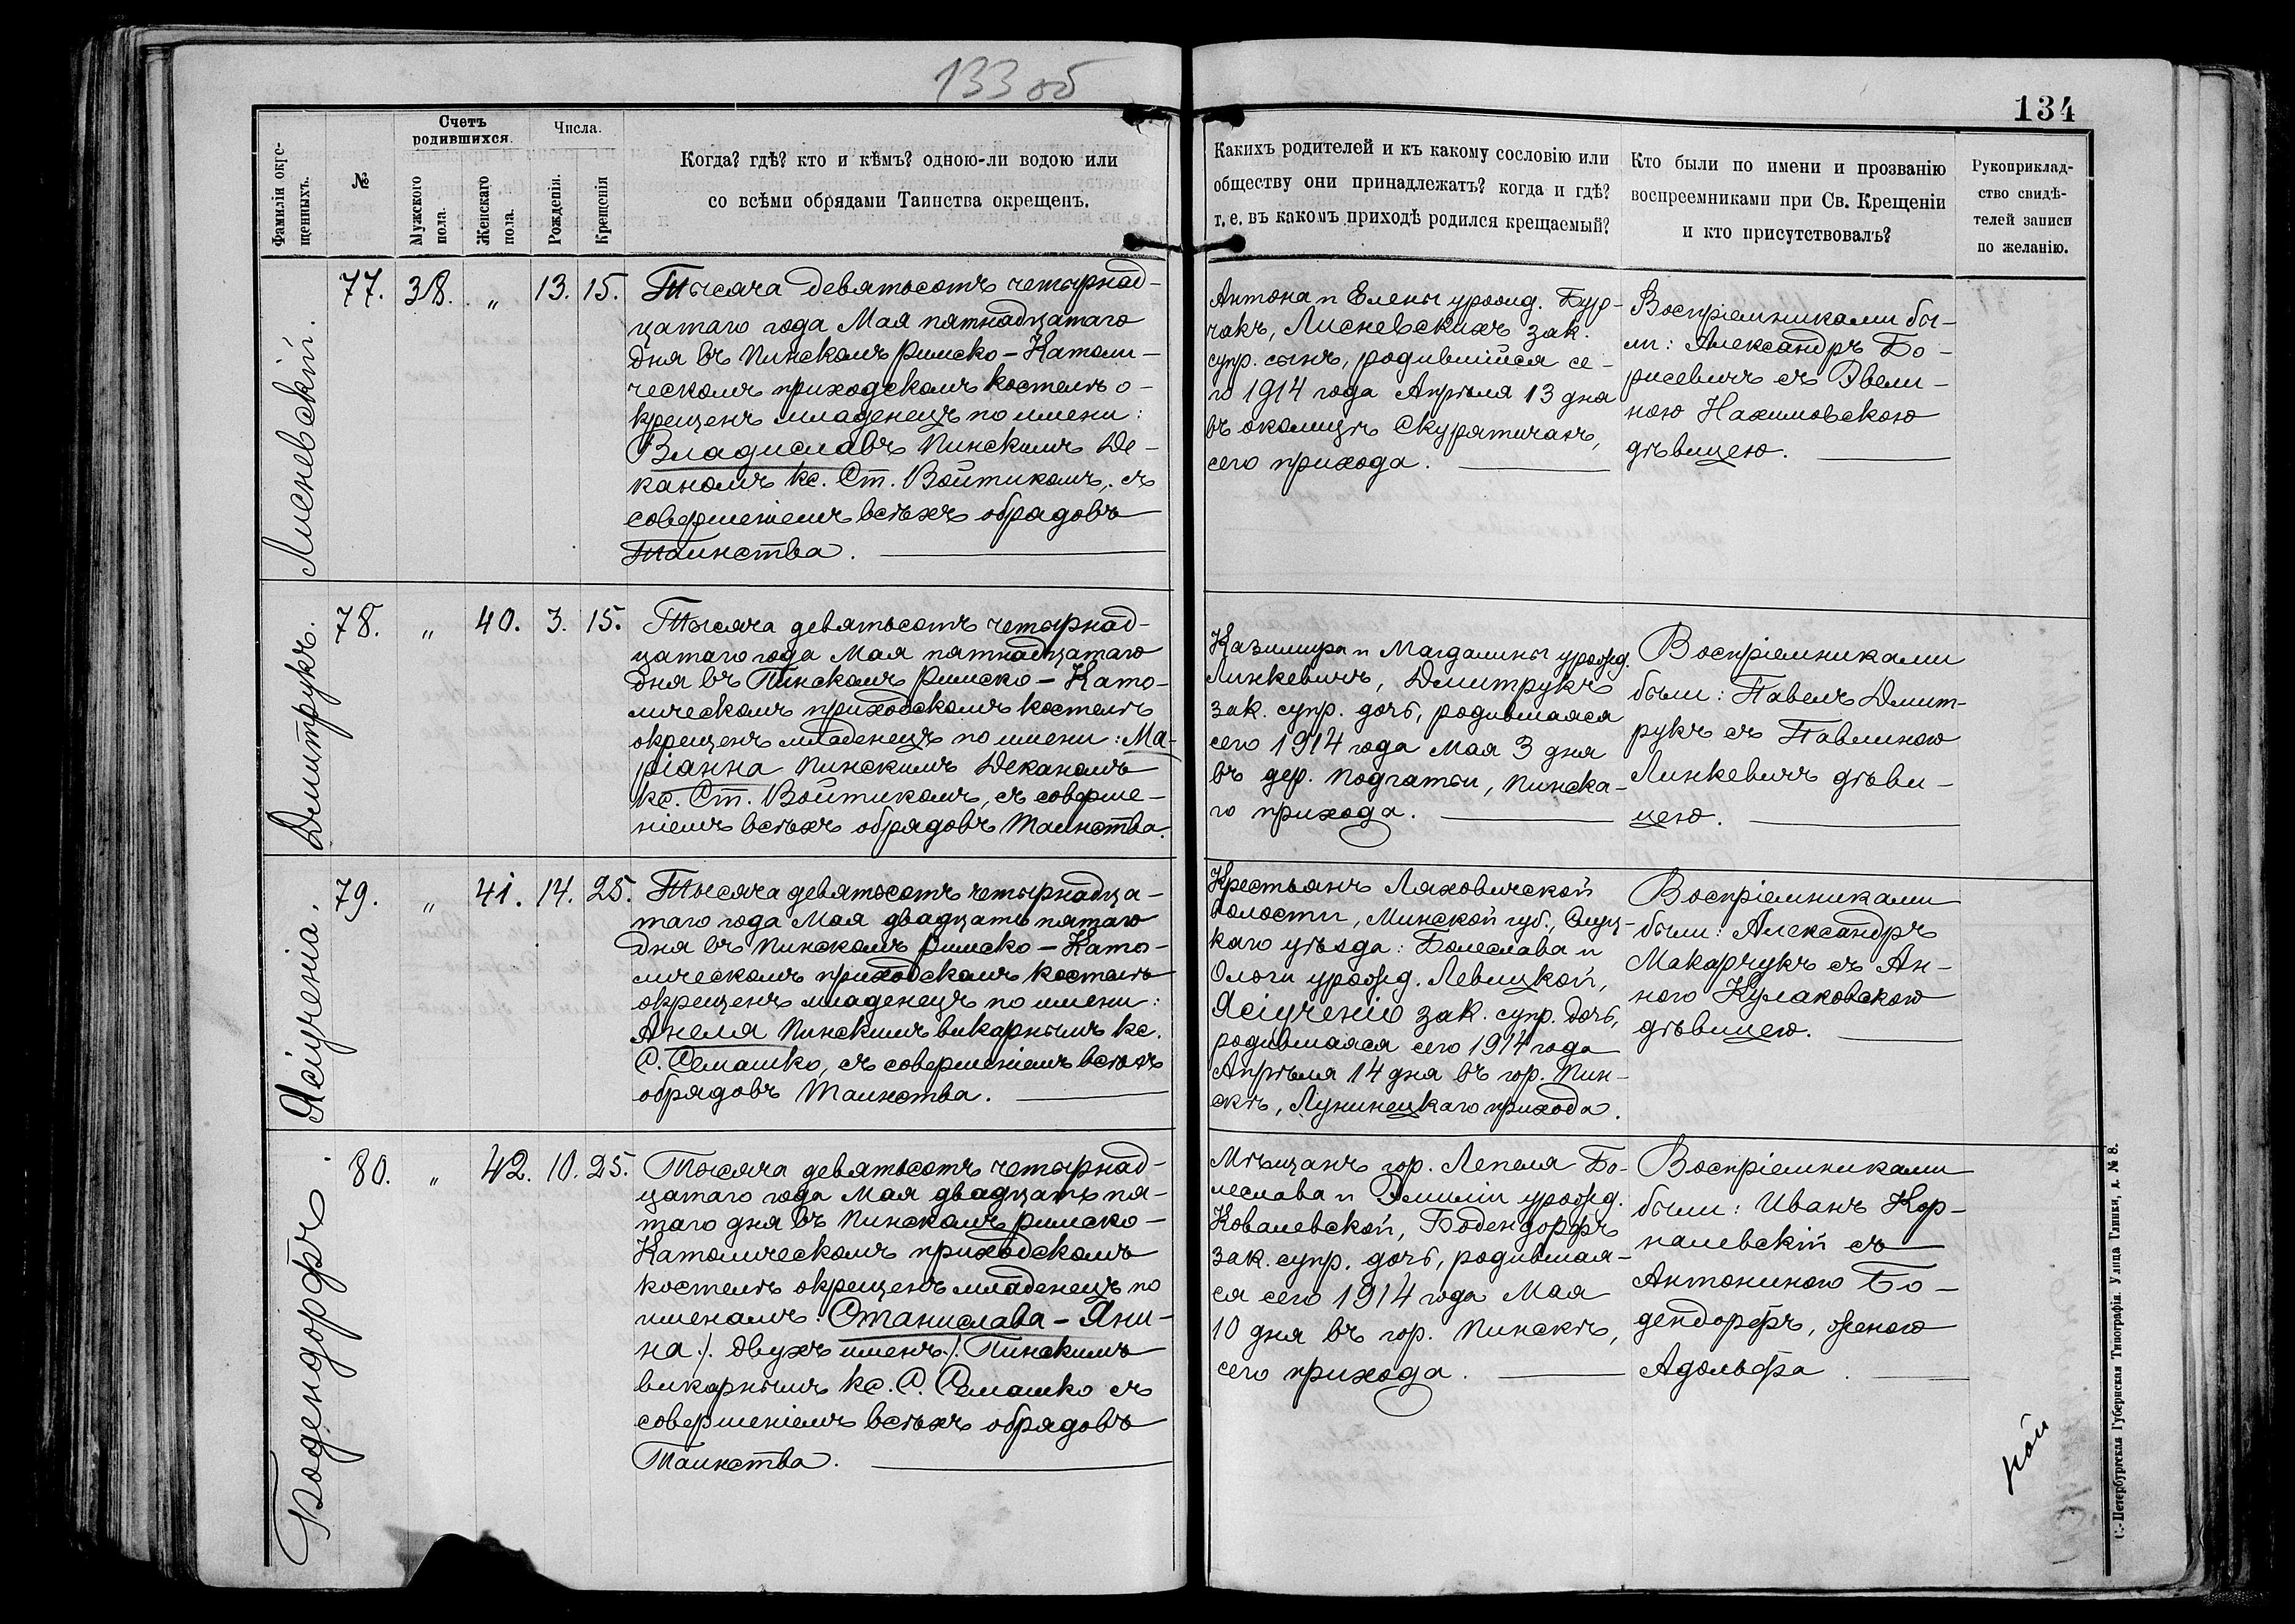 133 об
134
Фамиліи окре-
щенныхъ.
№
Счетъ
родившихся.
Мужского
пола.
Женскаго
пола.
Числа.
Рожденія.
Крещенія
Когда? гдѣ? кто и кѣмъ? одною-ли водою или
со всѣми обрядами Таинства окрещенъ.
Какихъ родителей и къ какому сословію или
обществу они принадлежатъ? когда и гдѣ?
т. е. въ какомъ приходѣ родился крещаемый?
Кто были по имени и прозванію
воспреемниками при Св. Крещеніи
и кто присутствовалъ?
Рукоприклад-
ство свидѣ-
телей записи
по желанію.
Лисневскій.
77. 38. „ 13. 15.
Тысяча девятьсотъ четырнад-
цатаго года Мая пятнадцатаго
дня въ Пинскомъ Римско-Католи-
ческомъ приходскомъ костелѣ о-
крещенъ младенецъ по имени:
Владиславъ Пинскимъ Де-
каномъ кс. Ст. Войтикомъ, съ
совершеніемъ всѣхъ обрядовъ
Таинства.
Антона и Елены урожд. Бур-
чакъ, Лисневскихъ зак.
супр. сынъ, родившійся се-
го 1914 года Апрѣля 13 дня
въ околицѣ Скурятичахъ,
сего прихода.
Воспріемниками бы-
ли: Александръ Бо-
рисевичъ съ Эвели-
ною Нахимовскою
дѣвицею.
Дмитрукъ.
78. „ 40. 3. 15.
Тысяча девятьсотъ четырнад-
цатаго года Мая пятнадцатаго
дня въ Пинскомъ Римско-Като-
лическомъ приходскомъ костелѣ
окрещенъ младенецъ по имени: Ма-
ріанна Пинскимъ Деканомъ
кс. Ст. Войтикомъ, съ соверше-
ніемъ всѣхъ обрядовъ Таинства.
Казимира и Магдалины урожд.
Линкевичъ, Дмитрукъ
зак. супр. дочь, родившаяся
сего 1914 года Мая 3 дня
въ дер. Подгатьи, Пинска-
го прихода.
Воспріемниками
были: Павелъ Дмит-
рукъ съ Павлиною
Линкевичъ дѣви-
цею.
Ясіученіа.
79. „ 41. 14. 25.
Тысяча девятьсотъ четырнадца-
таго года Мая двадцать пятаго
дня въ Пинскомъ Римско-Като-
лическомъ приходскомъ костелѣ
окрещенъ младенецъ по имени:
Анеля Пинскимъ викарнымъ кс.
С. Семашко, съ совершеніемъ всѣхъ
обрядовъ Таинства.
Крестьянъ Ляховичской
волости, Минской губ., Слуц-
каго уѣзда: Болеслава и
Ольги урожд. Левицкой,
Ясіученію зак. супр. дочь,
родившаяся сего 1914 года
Апрѣля 14 дня въ гор. Пин-
скѣ, Лунинецкаго прихода.
Воспріемниками
были: Александръ
Макарчукъ съ Ан-
ною Кулаковскою
дѣвицею.
Бодендорфъ.
80. „ 42. 10. 25.
Тысяча девятьсотъ четырнад-
цатаго года Мая двадцать пя-
таго дня въ Пинскомъ Римско-
Католическомъ приходскомъ
костелѣ окрещенъ младенецъ по
именамъ: Станислава-Яни-
на /. двухъ именъ ./ Пинскимъ
викарнымъ кс. С. Семашко съ
совершеніемъ всѣхъ обрядовъ
Таинства.
Мѣщанъ гор. Лепеля Бо-
леслава и Эмиліи урожд.
Ковалевской, Бодендорфъ
зак. супр. дочь, родившая-
ся сего 1914 года Мая
10 дня въ гор. Пинскѣ,
сего прихода.
Воспріемниками
были: Иванъ Кор-
налевскій съ
Антониною Бо-
дендорфъ, женою
Адольфа.
кой
С.-Петербургская Губернская Типографія. Улица Глинки, д. № 8.